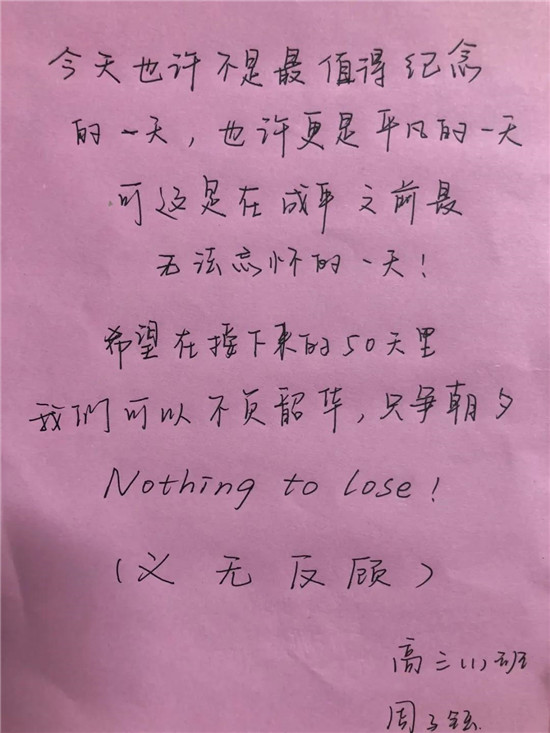 今天也许不是最值得纪念
的一天，也许更是平凡的一天
可这是在成年之前最
无法忘怀的一天！
希望在接下来的50天里
我們可以不负韶华，只争朝夕
Nothing to lose！
（义无反顾）
高三(1)班
周子